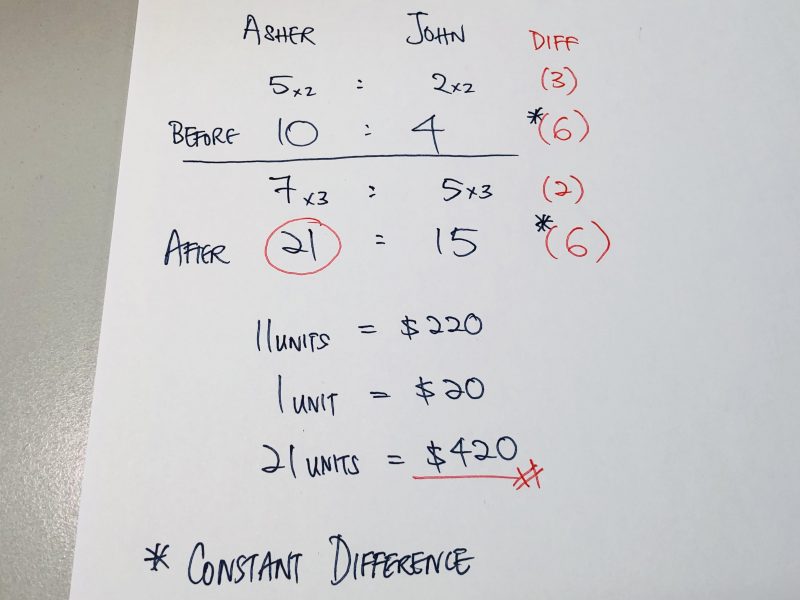 ASHER JOHN DIFF
5x2 : 2x2 (3)
BEFORE 10 : 4 *(6)
7x3 : 5x3 (2)
AFTER 21 = 15 *(6)
11 UNITS = $220
1 UNIT = $20
21 UNITS = $420
* CONSTANT DIFFERENCE